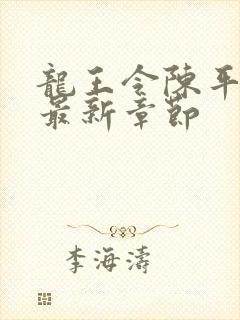 龍王令陳平
最新章節
李海濤